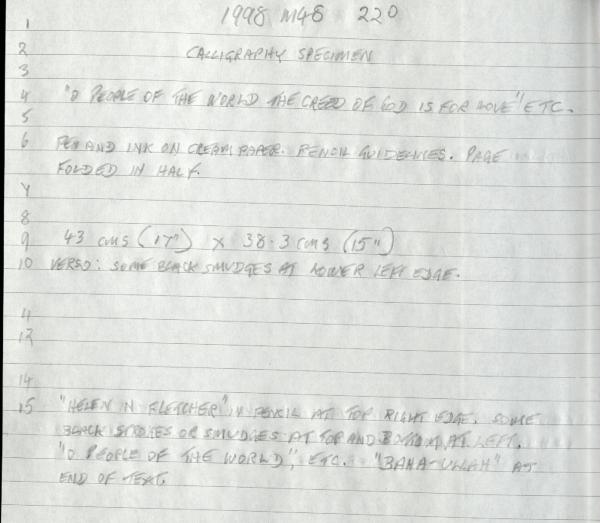 1998 M46 220
1
2 CALLIGRAPHY SPECIMEN
3
4 "O PEOPLE OF THE WORLD THE CREED OF GOD IS FOR LOVE" ETC.
5
6 PEN AND INK ON CREAM PAPER. PENCIL GUIDELINES. PAGE
FOLDED IN HALF.
7
8
9 43 cms (17") x 38.3 cms (15")
10 VERSO: SOME BLACK SMUDGES AT LOWER LEFT EDGE.
11
12
14
15 "HELEN N FLETCHER" IN PENCIL AT TOP RIGHT EDGE. SOME
BLACK STROKES OR SMUDGES AT TOP AND BOTTOM AT LEFT.
"O PEOPLE OF THE WORLD", ETC. "BAHA-ULLAH" AT
END OF TEXT.